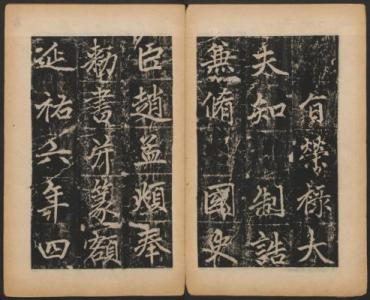 旨榮祿大
夫知制誥
兼脩國史
臣趙孟頫奉
勑書并篆額
延祐六年四